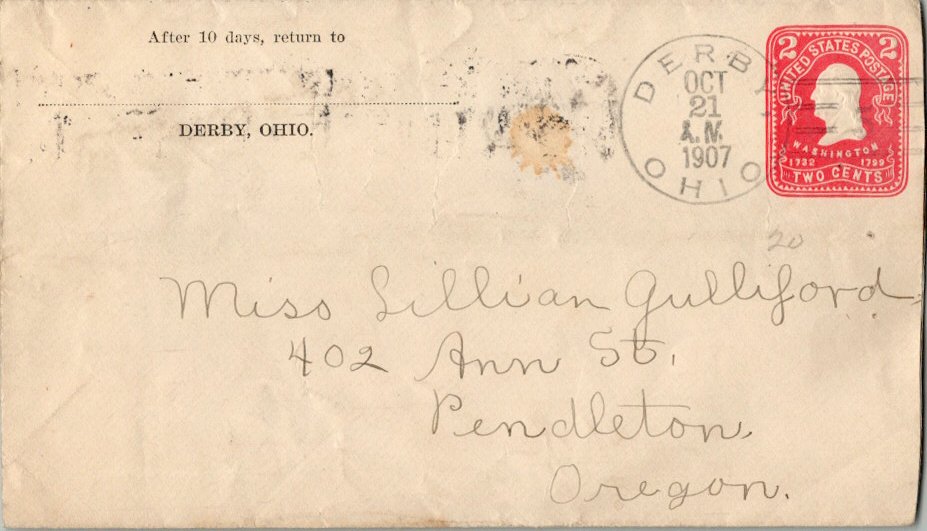 After 10 days, return to
DERBY, OHIO.
DERBY
OCT
21
A.M.
1907
OHIO
2 2
UNITED STATES POSTAGE
WASHINGTON
1732 1799
TWO CENTS
20
Miss Lillian Gulliford
402 Ann St.
Pendleton
Oregon.